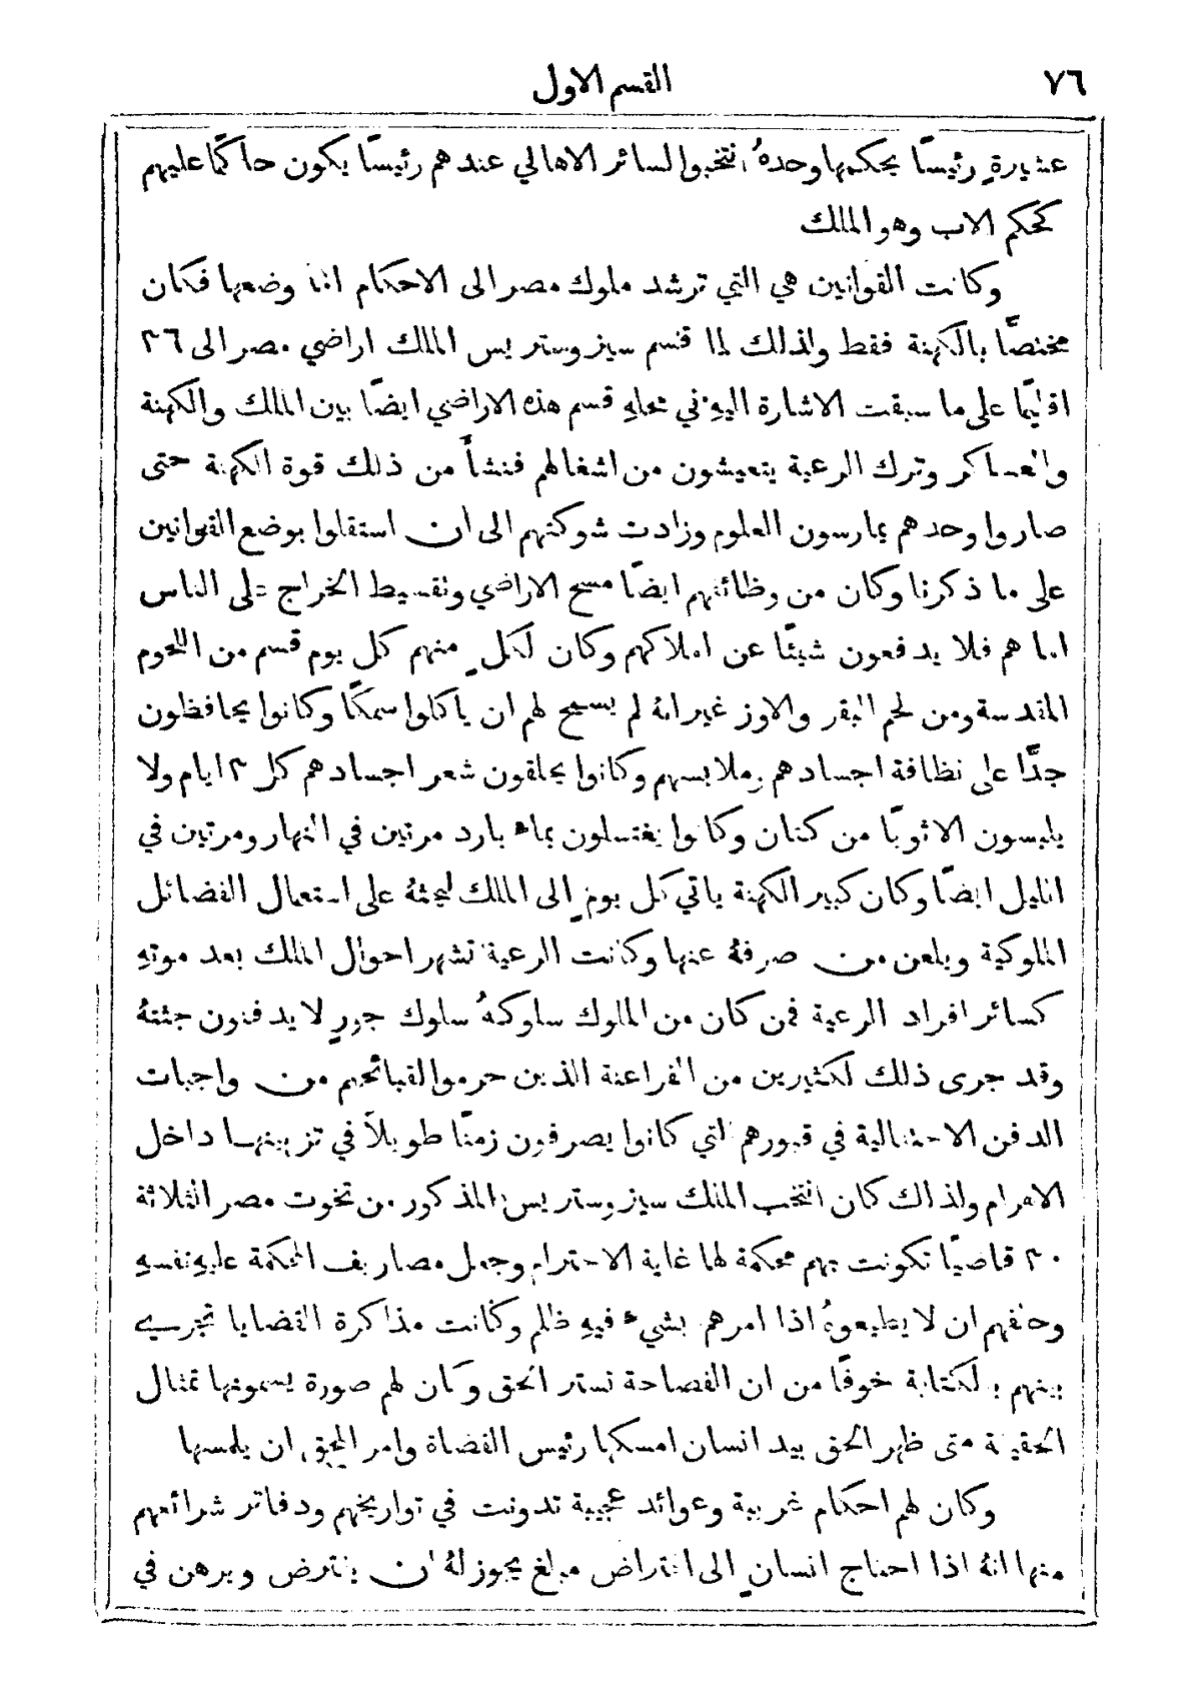 ٧٦
القسم الاول
عشيرةٍ رئيسًا يحكمها وحدهُ انتخبوا لسائر الاهالي عندهم رئيسًا يكون حاكمًا عليهم
كحكم الاب وهو الملك
وكانت القوانين هي التي ترشد ملوك مصر الى الاحكام اما وضعها فكان
مختصًّا بالكهنة فقط ولذلك لما قسم سيزوستريس الملك اراضي مصر الى ٣٦
اقليمًا على ما سبقت الاشارة اليهِ في محلهِ قسم هذه الاراضي ايضًا بين الملك والكهنة
والعساكر وترك الرعية يتعيشون من اشغالهم فنشأَ من ذلك قوة الكهنة حتى
صاروا وحدهم يمارسون العلوم وزادت شوكتهم الى ان استقلوا بوضع القوانين
على ما ذكرنا وكان من وظائفهم ايضًا مسح الاراضي وتقسيط الخراج على الناس
اما هم فلا يدفعون شيئًا عن املاكهم وكان لكلٍ منهم كل يوم قسم من اللحوم
المقدسة ومن لحم البقر والاوز غير انهُ لم يسمح لهم ان ياكلوا سمكًا وكانوا يحافظون
جدًّا على نظافة اجسادهم وملابسهم وكانوا يحلقون شعر اجسادهم كل ٣ ايام ولا
يلبسون الا ثوبًا من كتان وكانوا يغتسلون بماء بارد مرتين في النهار ومرتين في
الليل ايضًا وكان كبير الكهنة ياتي كل يومٍ الى الملك ليحثهُ على استعمال الفضائل
الملوكية ويلعن من صرفهُ عنها وكانت الرعية تشهر احوال الملك بعد موتهِ
كسائر افراد الرعية فمن كان من الملوك سلوكهُ سلوك جورٍ لا يدفنون جثتهُ
وقد جرى ذلك لكثيرين من الفراعنة الذين حرموا لقبائحهم من واجبات
الدفن الاحتفالية في قبورهم التي كانوا يصرفون زمنًا طويلاً في تزيينها داخل
الاهرام ولذلك كان انتخب الملك سيزوستريس المذكور من تخوت مصر الثلاثة
٣٠ قاضيًا تكونت بهم محكمة لها غاية الاحترام وجعل مصاريف المحكمة عليهِ نفسهِ
وحلفهم ان لا يطيعوهُ اذا امرهم بشيء فيهِ ظلم وكانت مذاكرة القضايا تجري
بينهم بالكتابة خوفًا من ان الفصاحة تستر الحق وكان لهم صورة يسمونها تمثال
الحقيقة متى ظهر الحق بيد انسان امسكها رئيس القضاة وامر المحق ان يلمسها
وكان لهم احكام غريبة وعوائد عجيبة تدونت في تواريخهم ودفاتر شرائعهم
منها انهُ اذا احتاج انسانٍ الى اقتراض مبلغ يجوز لهُ ان يقترض ويرهن في